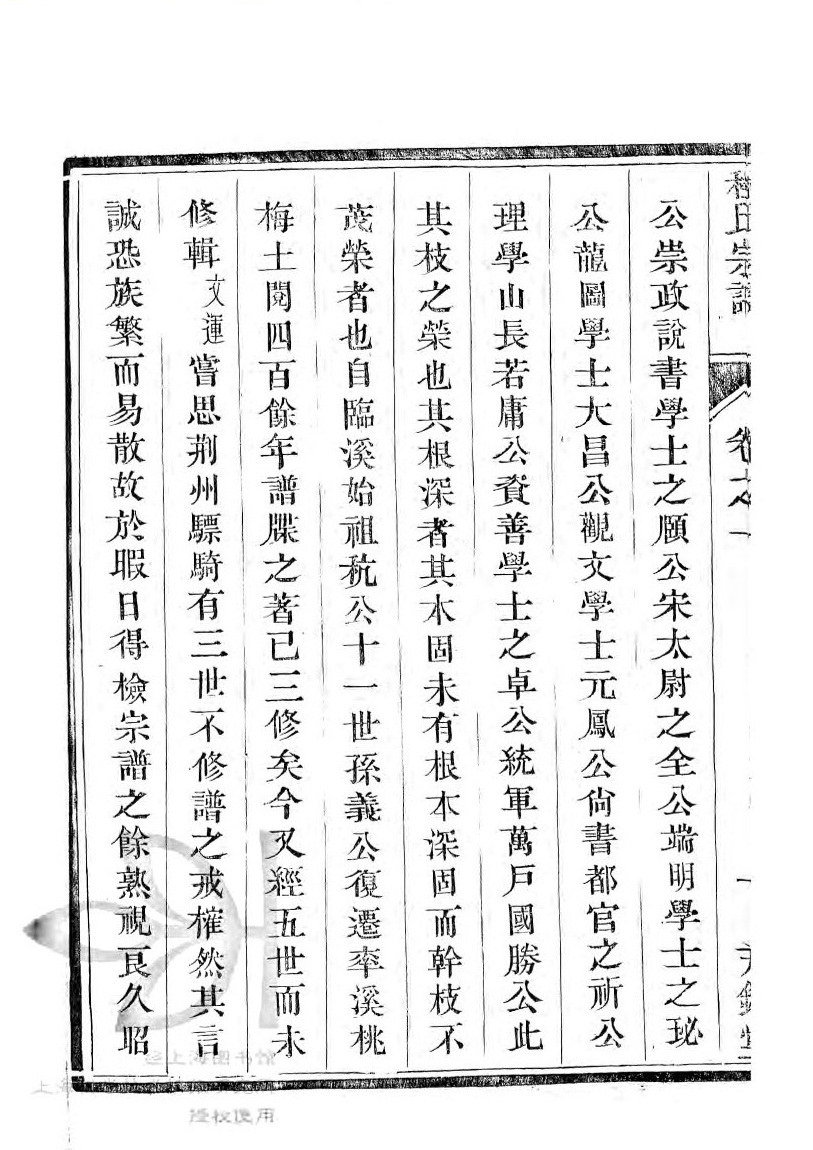 程氏宗譜 卷之一
公崇政說書學士之頤公宋太尉之全公端明學士之珌
公龍圖學士大昌公觀文學士元鳳公尙書都官之祈公
理學山長若庸公資善學士之卓公統軍萬戶國勝公此
其枝之榮也其根深者其本固未有根本深固而幹枝不
茂榮者也自臨溪始祖秔公十一世孫義公復遷率溪桃
梅土閱四百餘年譜牒之著已三修矣今又經五世而未
修輯文運嘗思荆州驃騎有三世不修譜之戒榷然其言
誠恐族繁而易散故於暇日得檢宗譜之餘熟視良久昭
@上海图书馆
授权使用